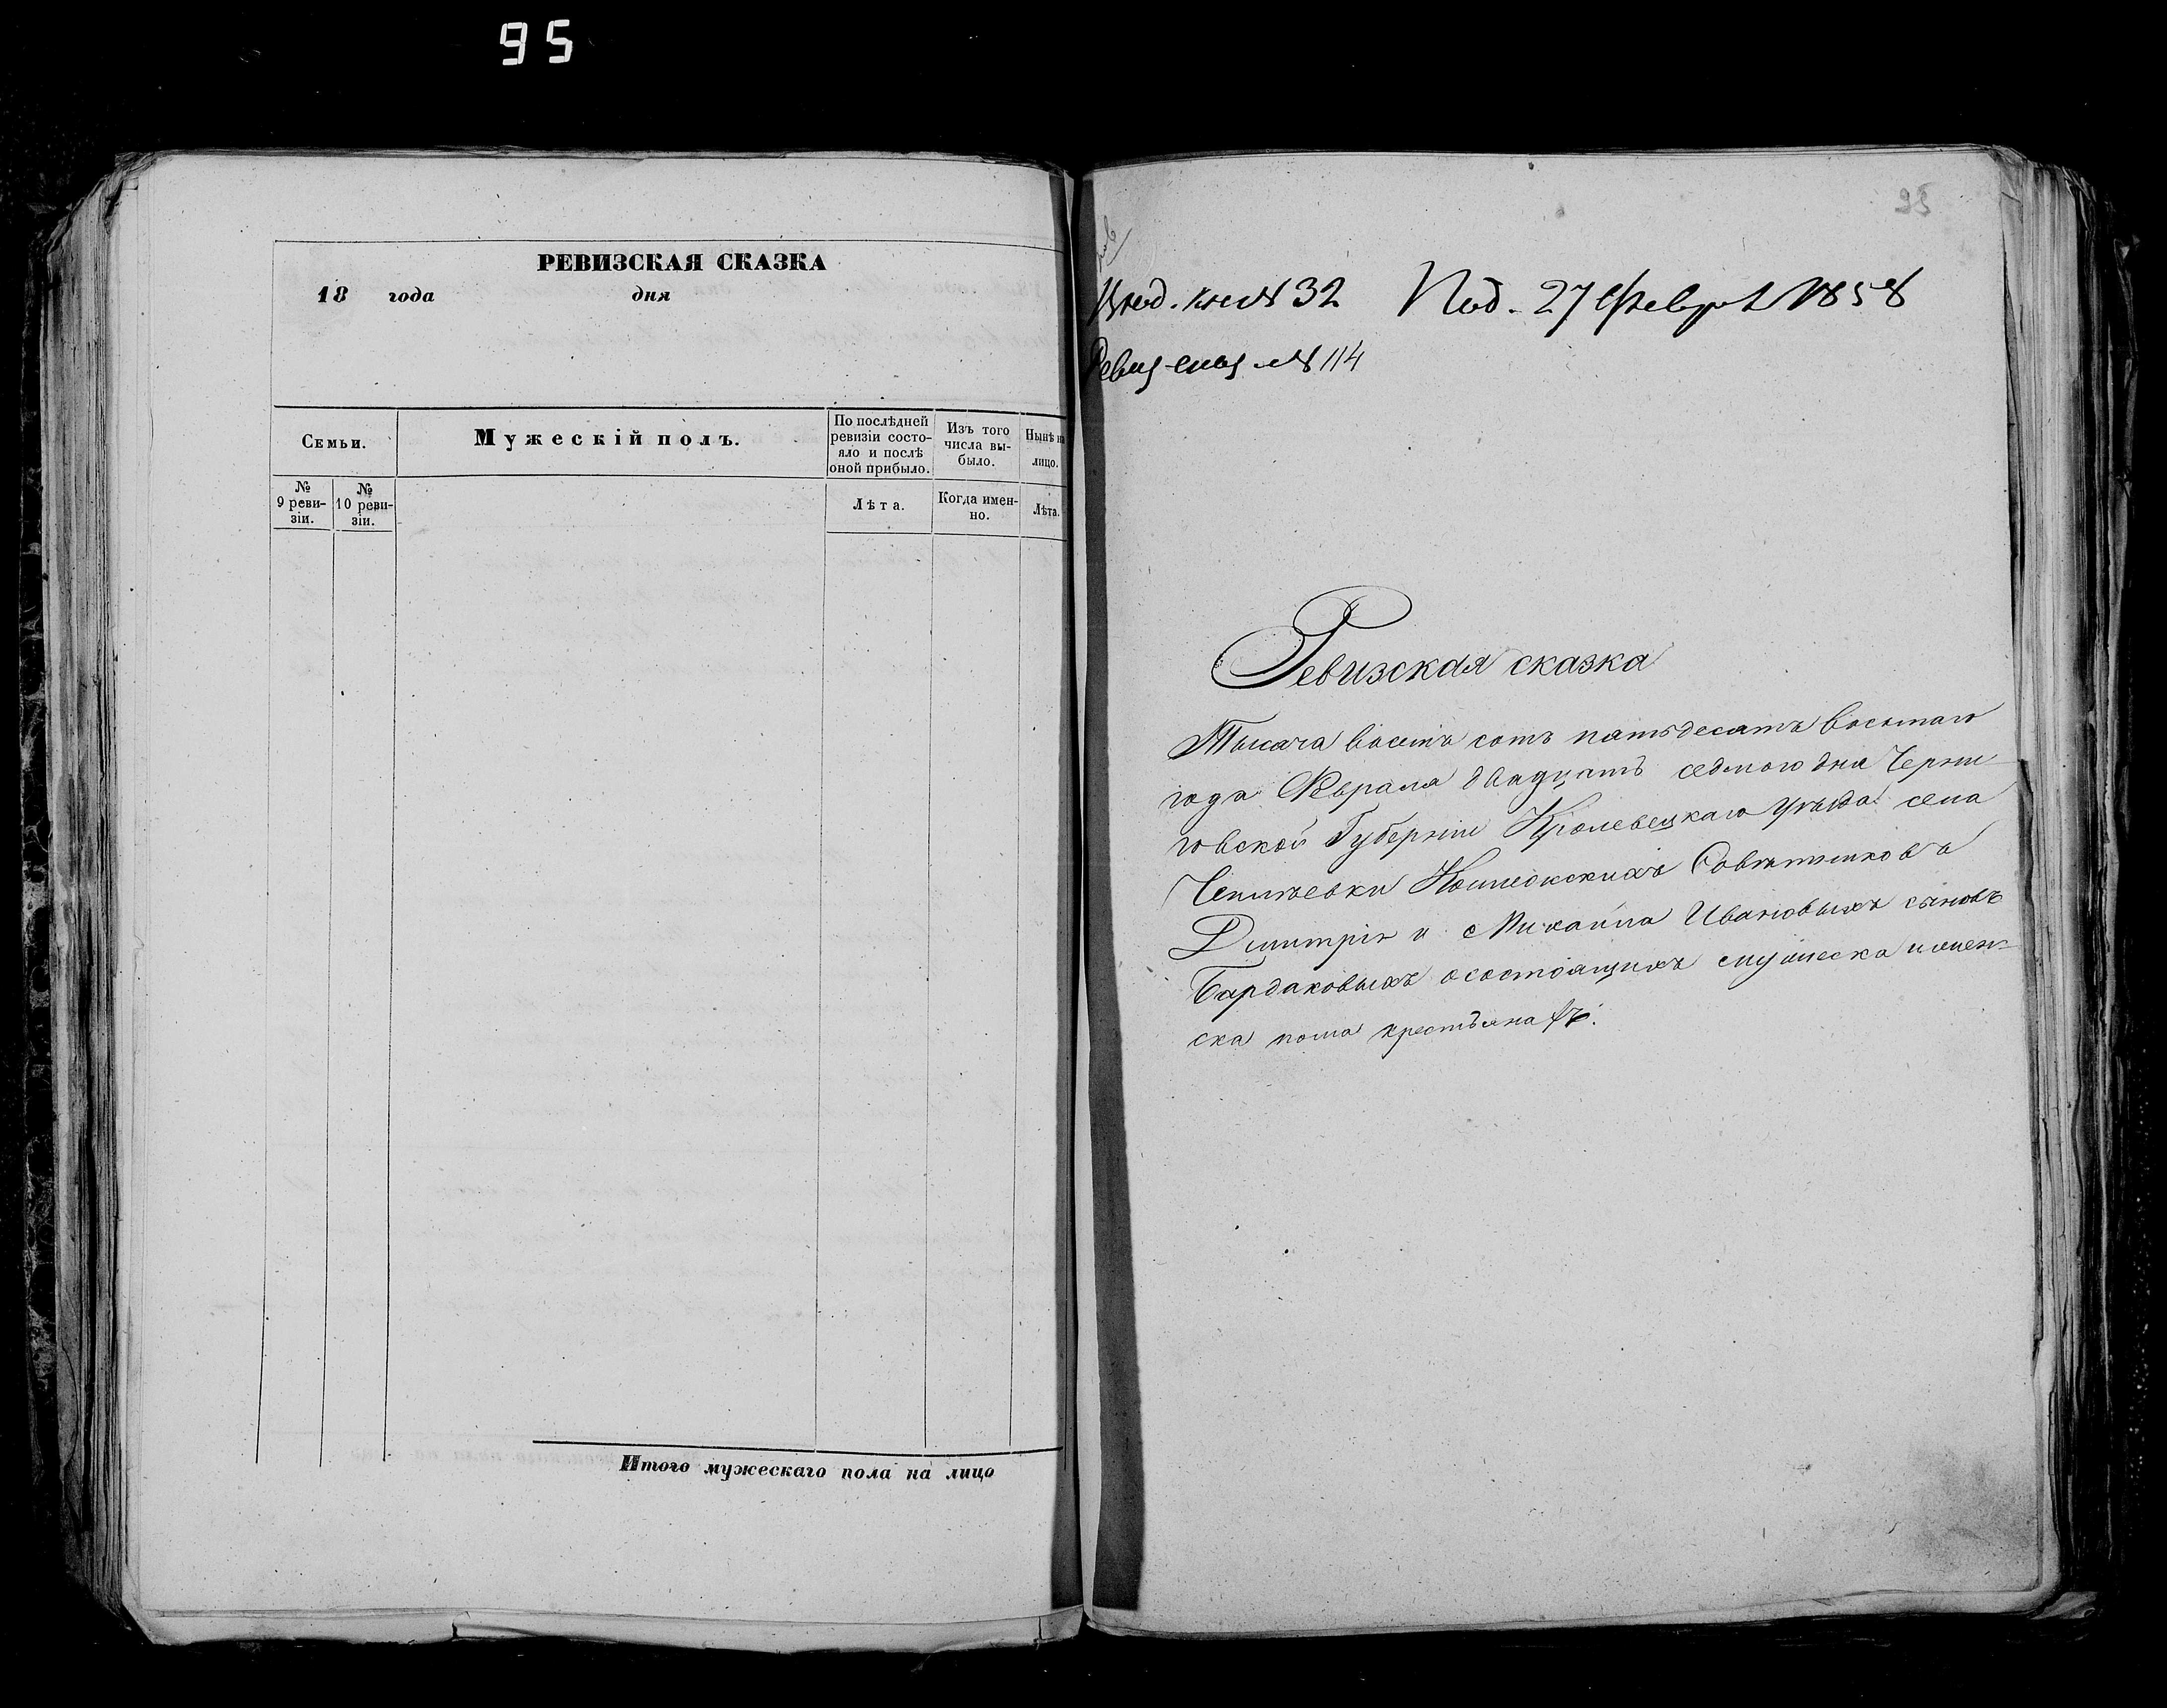 95
РЕВИЗСКАЯ СКАЗКА
18 года дня
Семьи.
Мужескій полъ.
По послѣдней ревизіи состо-
яло и послѣ
оной прибыло.
Изъ того
числа вы-
было.
Нынѣ на
лицо.
№
9 реви-
зіи.
№
10 реви-
зіи.
Лѣта.
Когда имен-
но.
Лѣта.
Итого мужескаго пола на лицо
95
№ 32 Под. 27 Феврал 1858
№ 114
Ревизская сказка
Тысяча восемъ сотъ пятьдесятъ восьмаго
года Февраля двадцать седмого дня Черни
говской Губерніи Кролевецкаго уѣзда села
Чепліевки Совѣтниковъ
Дмитрія и Михаила Ивановыхъ сыновъ
Бардаковыхъ осостоящихъ мужеска иженъ
ска пола крестьянахъ.